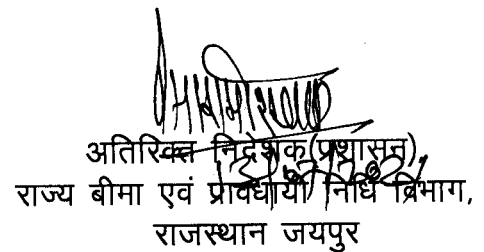 अतिरिक्त निदेशक(प्रशासन)
राज्य बीमा एवं प्रावधायी निधि विभाग,
राजस्थान जयपुर